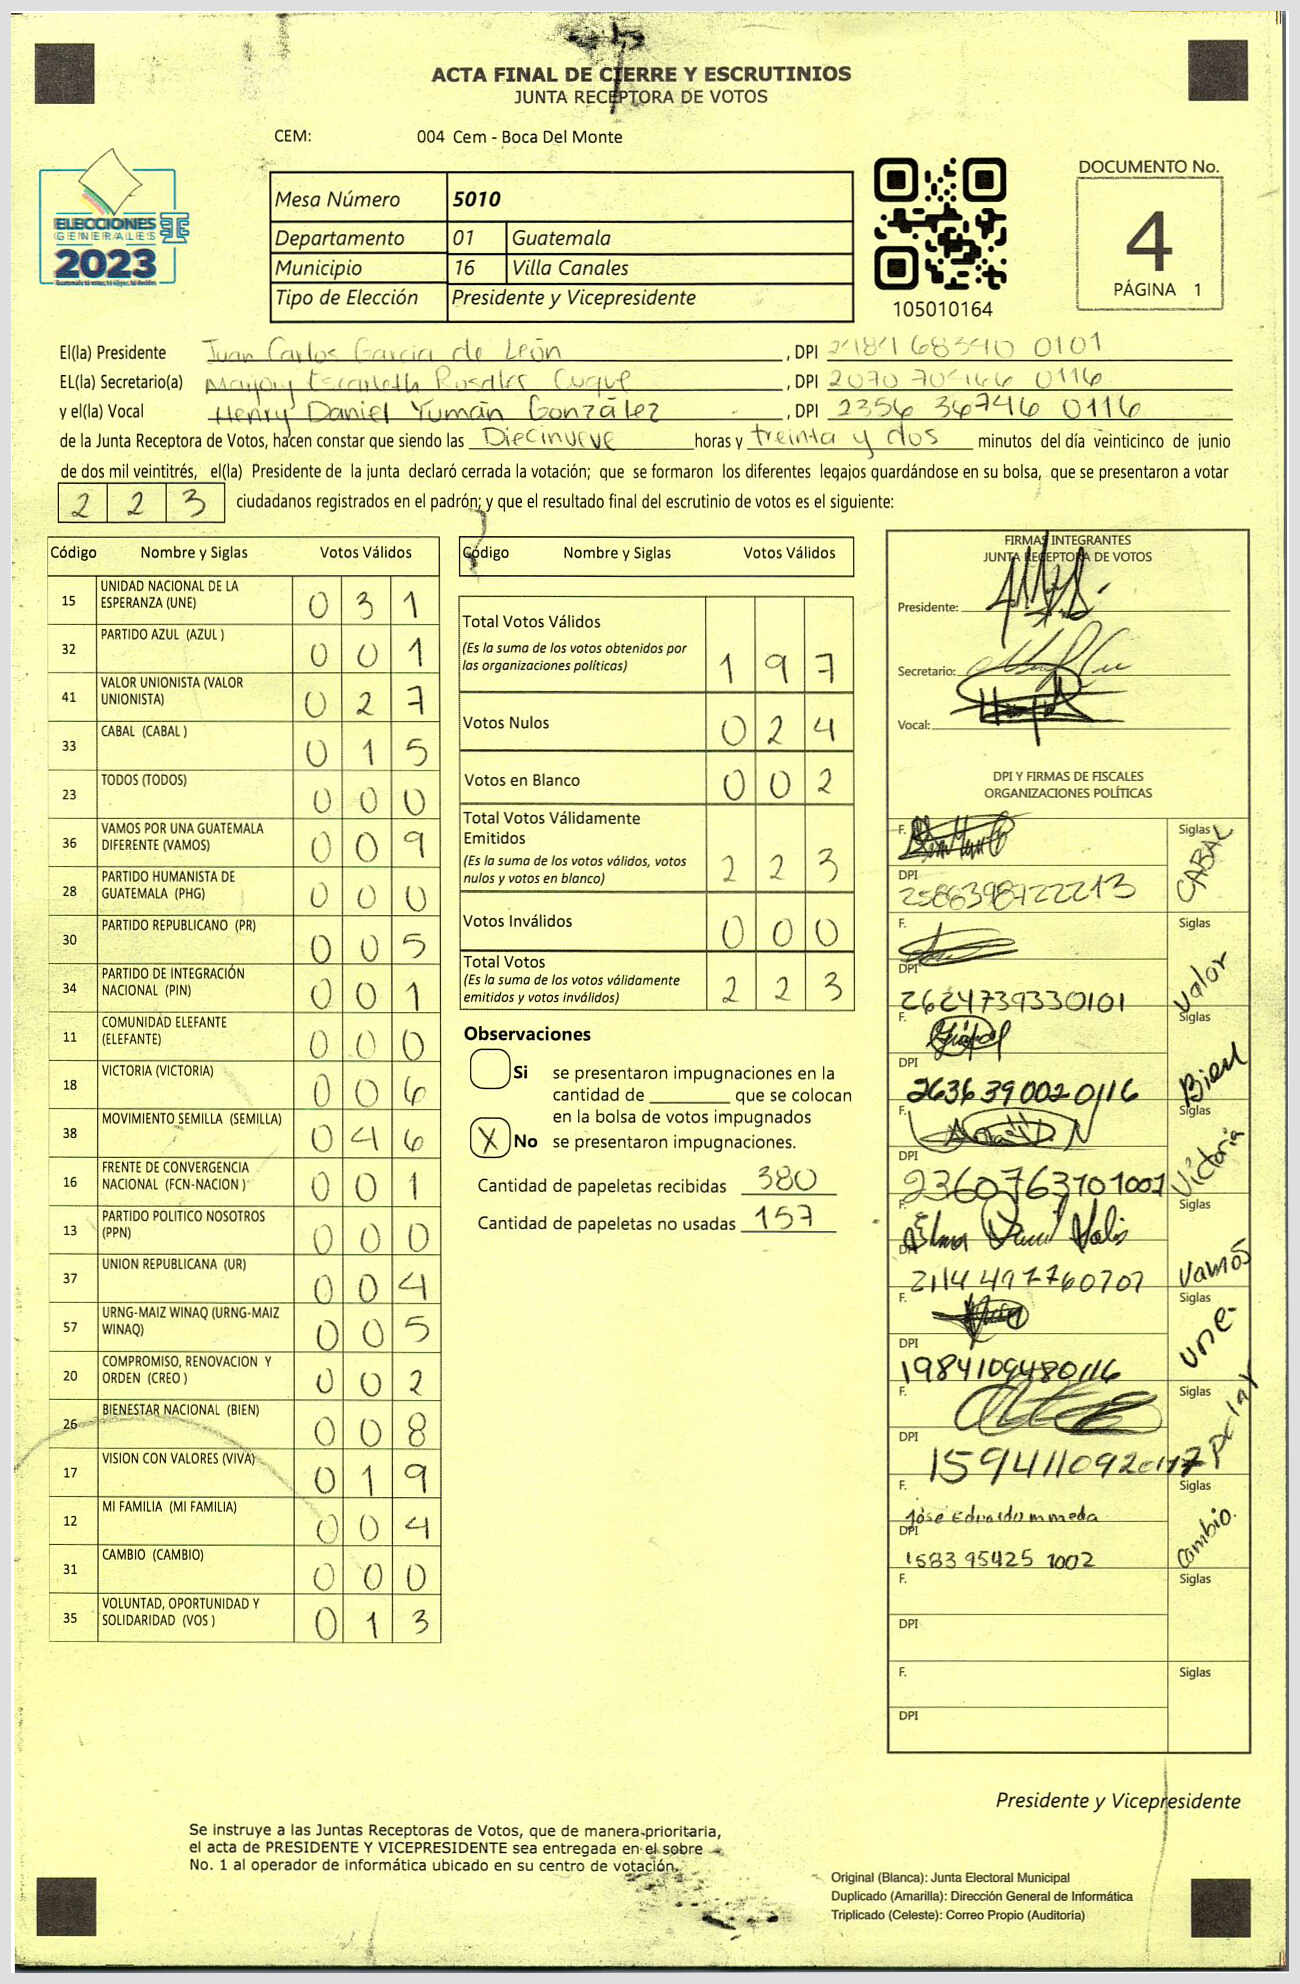 ACTA FINAL DE CIERRE Y ESCRUTINIOS
JUNTA RECEPTORA DE VOTOS
CEM: 004 Cem - Boca Del Monte
ELECCIONES
GENERALES
2023
Mesa Número 5010
Departamento 01 Guatemala
Municipio 16 Villa Canales
Tipo de Elección Presidente y Vicepresidente
105010164
DOCUMENTO No.
4
PÁGINA 1
El(la) Presidente Juan Carlos Garcia de León , DPI 0101
EL(la) Secretario(a) Cuque , DPI 2070 0116
y el(la) Vocal Henry Daniel Yumán González , DPI 2356 36746 0116
de la Junta Receptora de Votos, hacen constar que siendo las Diecinueve horas y treinta y dos minutos del día veinticinco de junio
de dos mil veintitrés, el(la) Presidente de la junta declaró cerrada la votación; que se formaron los diferentes legajos quardándose en su bolsa, que se presentaron a votar
2 2 3 ciudadanos registrados en el padrón; y que el resultado final del escrutinio de votos es el siguiente:
Código Nombre y Siglas Votos Válidos
15 UNIDAD NACIONAL DE LA ESPERANZA (UNE) 0 3 1
32 PARTIDO AZUL (AZUL ) 0 0 1
41 VALOR UNIONISTA (VALOR UNIONISTA) 0 2 7
33 CABAL (CABAL ) 0 1 5
23 TODOS (TODOS) 0 0 0
36 VAMOS POR UNA GUATEMALA DIFERENTE (VAMOS) 0 0 9
28 PARTIDO HUMANISTA DE GUATEMALA (PHG) 0 0 0
30 PARTIDO REPUBLICANO (PR) 0 0 5
34 PARTIDO DE INTEGRACIÓN NACIONAL (PIN) 0 0 1
11 COMUNIDAD ELEFANTE (ELEFANTE) 0 0 0
18 VICTORIA (VICTORIA) 0 0 6
38 MOVIMIENTO SEMILLA (SEMILLA) 0 4 6
16 FRENTE DE CONVERGENCIA NACIONAL (FCN-NACION ) 0 0 1
13 PARTIDO POLITICO NOSOTROS (PPN) 0 0 0
37 UNION REPUBLICANA (UR) 0 0 4
57 URNG-MAIZ WINAQ (URNG-MAIZ WINAQ) 0 0 5
20 COMPROMISO, RENOVACION Y ORDEN (CREO ) 0 0 2
26 BIENESTAR NACIONAL (BIEN) 0 0 8
17 VISION CON VALORES (VIVA) 0 1 9
12 MI FAMILIA (MI FAMILIA) 0 0 4
31 CAMBIO (CAMBIO) 0 0 0
35 VOLUNTAD, OPORTUNIDAD Y SOLIDARIDAD (VOS ) 0 1 3
Código Nombre y Siglas Votos Válidos
Total Votos Válidos 1 9 7
(Es la suma de los votos obtenidos por
las organizaciones políticas)
Votos Nulos 0 2 4
Votos en Blanco 0 0 2
Total Votos Válidamente
Emitidos 2 2 3
(Es la suma de los votos válidos, votos
nulos y votos en blanco)
Votos Inválidos 0 0 0
Total Votos 2 2 3
(Es la suma de los votos válidamente
emitidos y votos inválidos)
Observaciones
Si se presentaron impugnaciones en la
cantidad de ________ que se colocan
en la bolsa de votos impugnados
X No se presentaron impugnaciones.
Cantidad de papeletas recibidas 380
Cantidad de papeletas no usadas 157
FIRMAS INTEGRANTES
JUNTA RECEPTORA DE VOTOS
Presidente:
Secretario:
Vocal:
DPI Y FIRMAS DE FISCALES
ORGANIZACIONES POLÍTICAS
F. Siglas CABAL
DPI
F. Siglas Valor
DPI 2624739330101
F. Siglas Bien
DPI 2636390020116
F. Siglas Victoria
DPI 2360763101001
F. Siglas Vamos
DPI 2114497760707
F. Siglas une
DPI 1984109480116
F. Siglas
DPI
F. José Eduardo Siglas Cambio.
DPI 1583 95425 1002
F. Siglas
DPI
F. Siglas
DPI
Presidente y Vicepresidente
Se instruye a las Juntas Receptoras de Votos, que de manera prioritaria,
el acta de PRESIDENTE Y VICEPRESIDENTE sea entregada en el sobre
No. 1 al operador de informática ubicado en su centro de votación.
Original (Blanca): Junta Electoral Municipal
Duplicado (Amarilla): Dirección General de Informática
Triplicado (Celeste): Correo Propio (Auditoría)